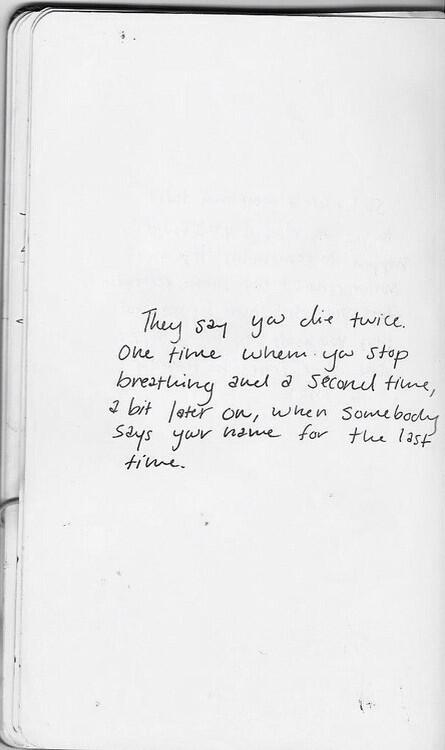 They say you die twice.
One time when you stop
breathing and a second time,
a bit later on, when somebody
says your name for the last
time.